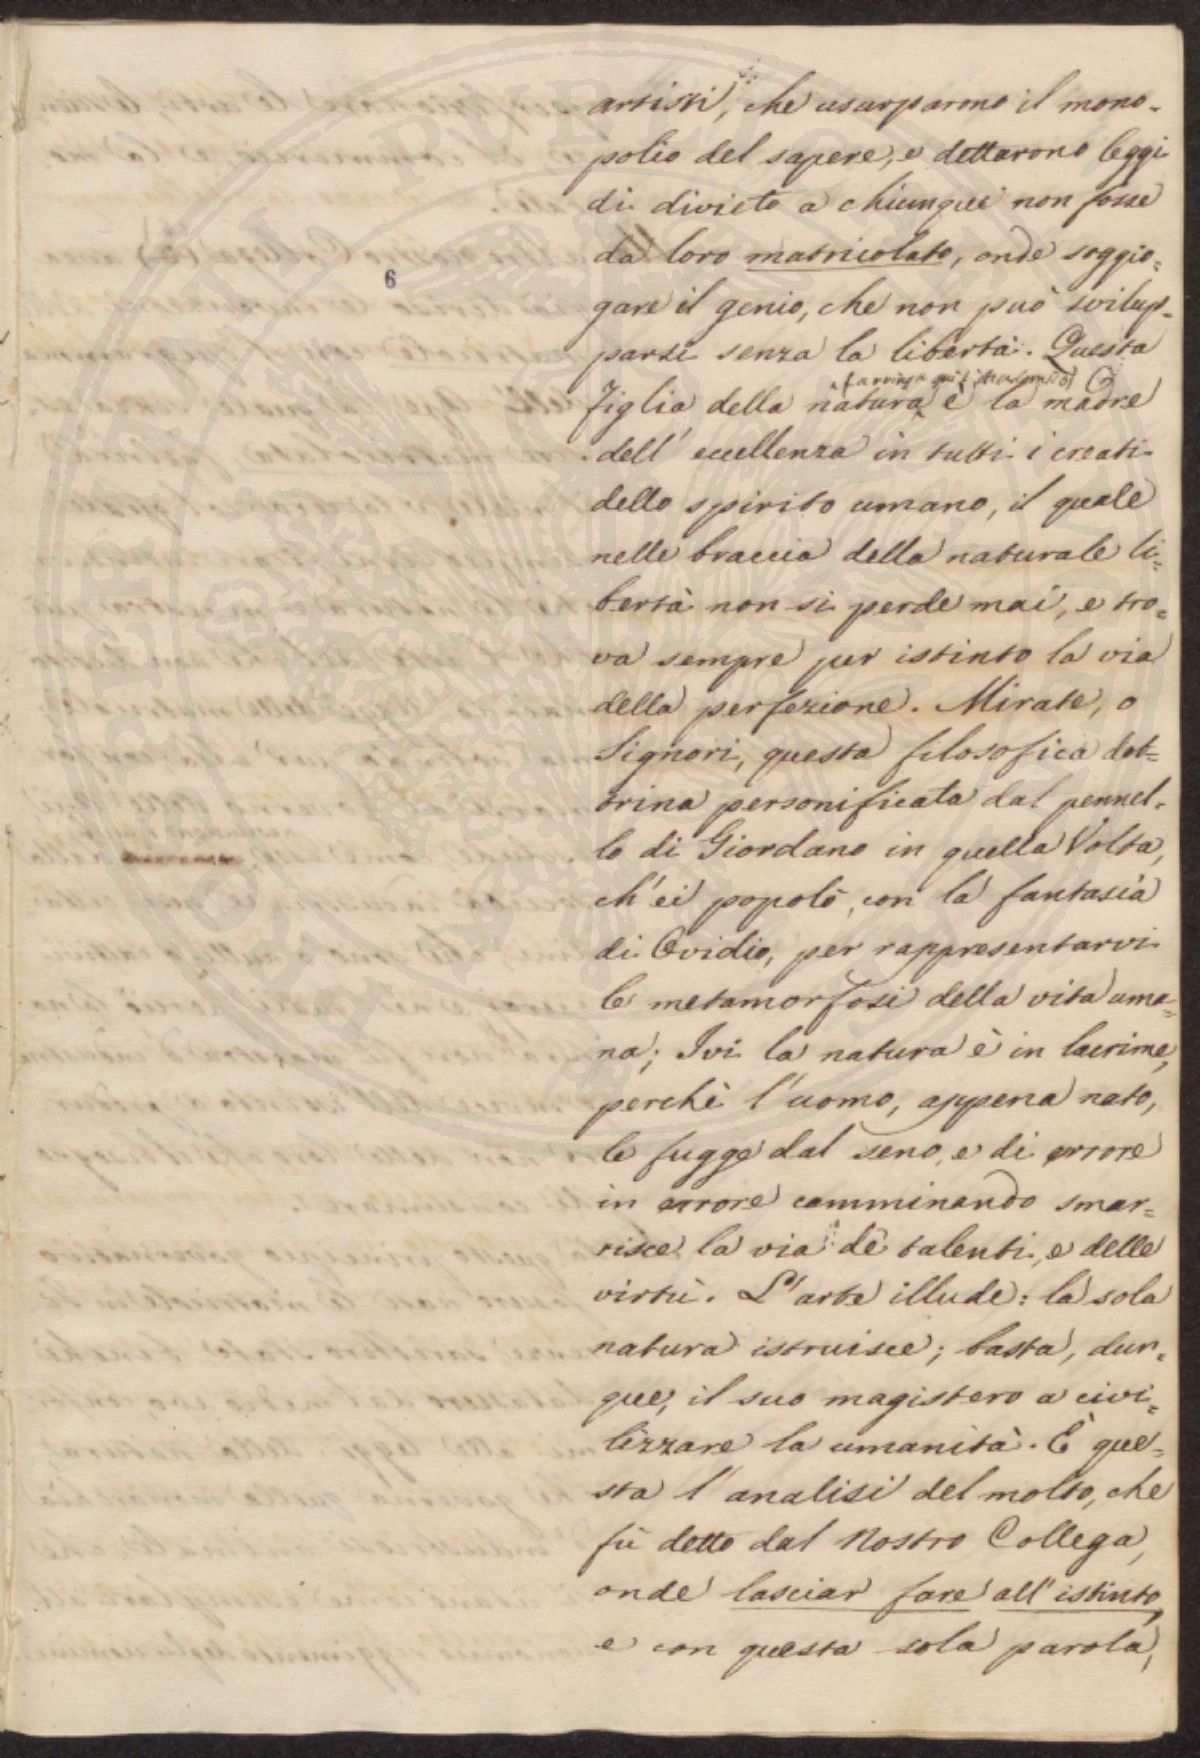 artisti, che usurparono il mono=
polio del sapere, e dettarono leggi
di divieto a chiunque non fosse
da loro matricolato, onde soggio=
6
gare il genio, che non può svilup=
parsi senza la libertà. Questa
figlia della natura è la madre
dell' eccellenza in tutti i creati
dello spirito umano, il quale
nelle braccia della naturale li=
bertà non si perde mai, e tro=
va sempre per istinto la via
della perfezione. Mirate, o
Signori, questa filosofica dot=
trina personificata dal pennel=
lo di Giordano in quella Volta,
ch'ei popolò, con la fantasia
di Ovidio, per rappresentarvi
le metamorfosi della vita uma=
na; Ivi la natura è in lacrime,
perchè l'uomo, appena nato,
le fugge dal seno, e di errore
in errore camminando smar=
risce la via de' talenti, e delle
virtù. L'arte illude: la sola
natura istruisce; basta, dun=
que, il suo magistero a civi=
lizzare la umanità. È que=
sta l'analisi del molto, che
fù detto dal Nostro Collega,
onde lasciar fare all'istinto,
e con questa sola parola,